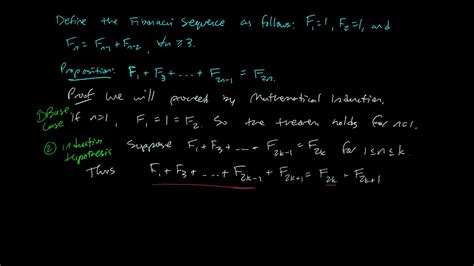 Define the Fibonacci Sequence as follows: F₁=1, F₂=1, and
Fₙ = Fₙ₋₁ + Fₙ₋₂, ∀n≥3.
Proposition: F₁ + F₃ + ... + F₂ₙ₋₁ = F₂ₙ.
Proof We will proceed by Mathematical Induction.
① Base Case If n=1, F₁ = 1 = F₂. So the theorem holds for n=1.
② Inductive Hypothesis Suppose F₁ + F₃ + ... + F₂ₖ₋₁ = F₂ₖ for 1≤n≤k.
Thus F₁ + F₃ + ... + F₂ₖ₋₁ + F₂ₖ₊₁ = F₂ₖ + F₂ₖ₊₁